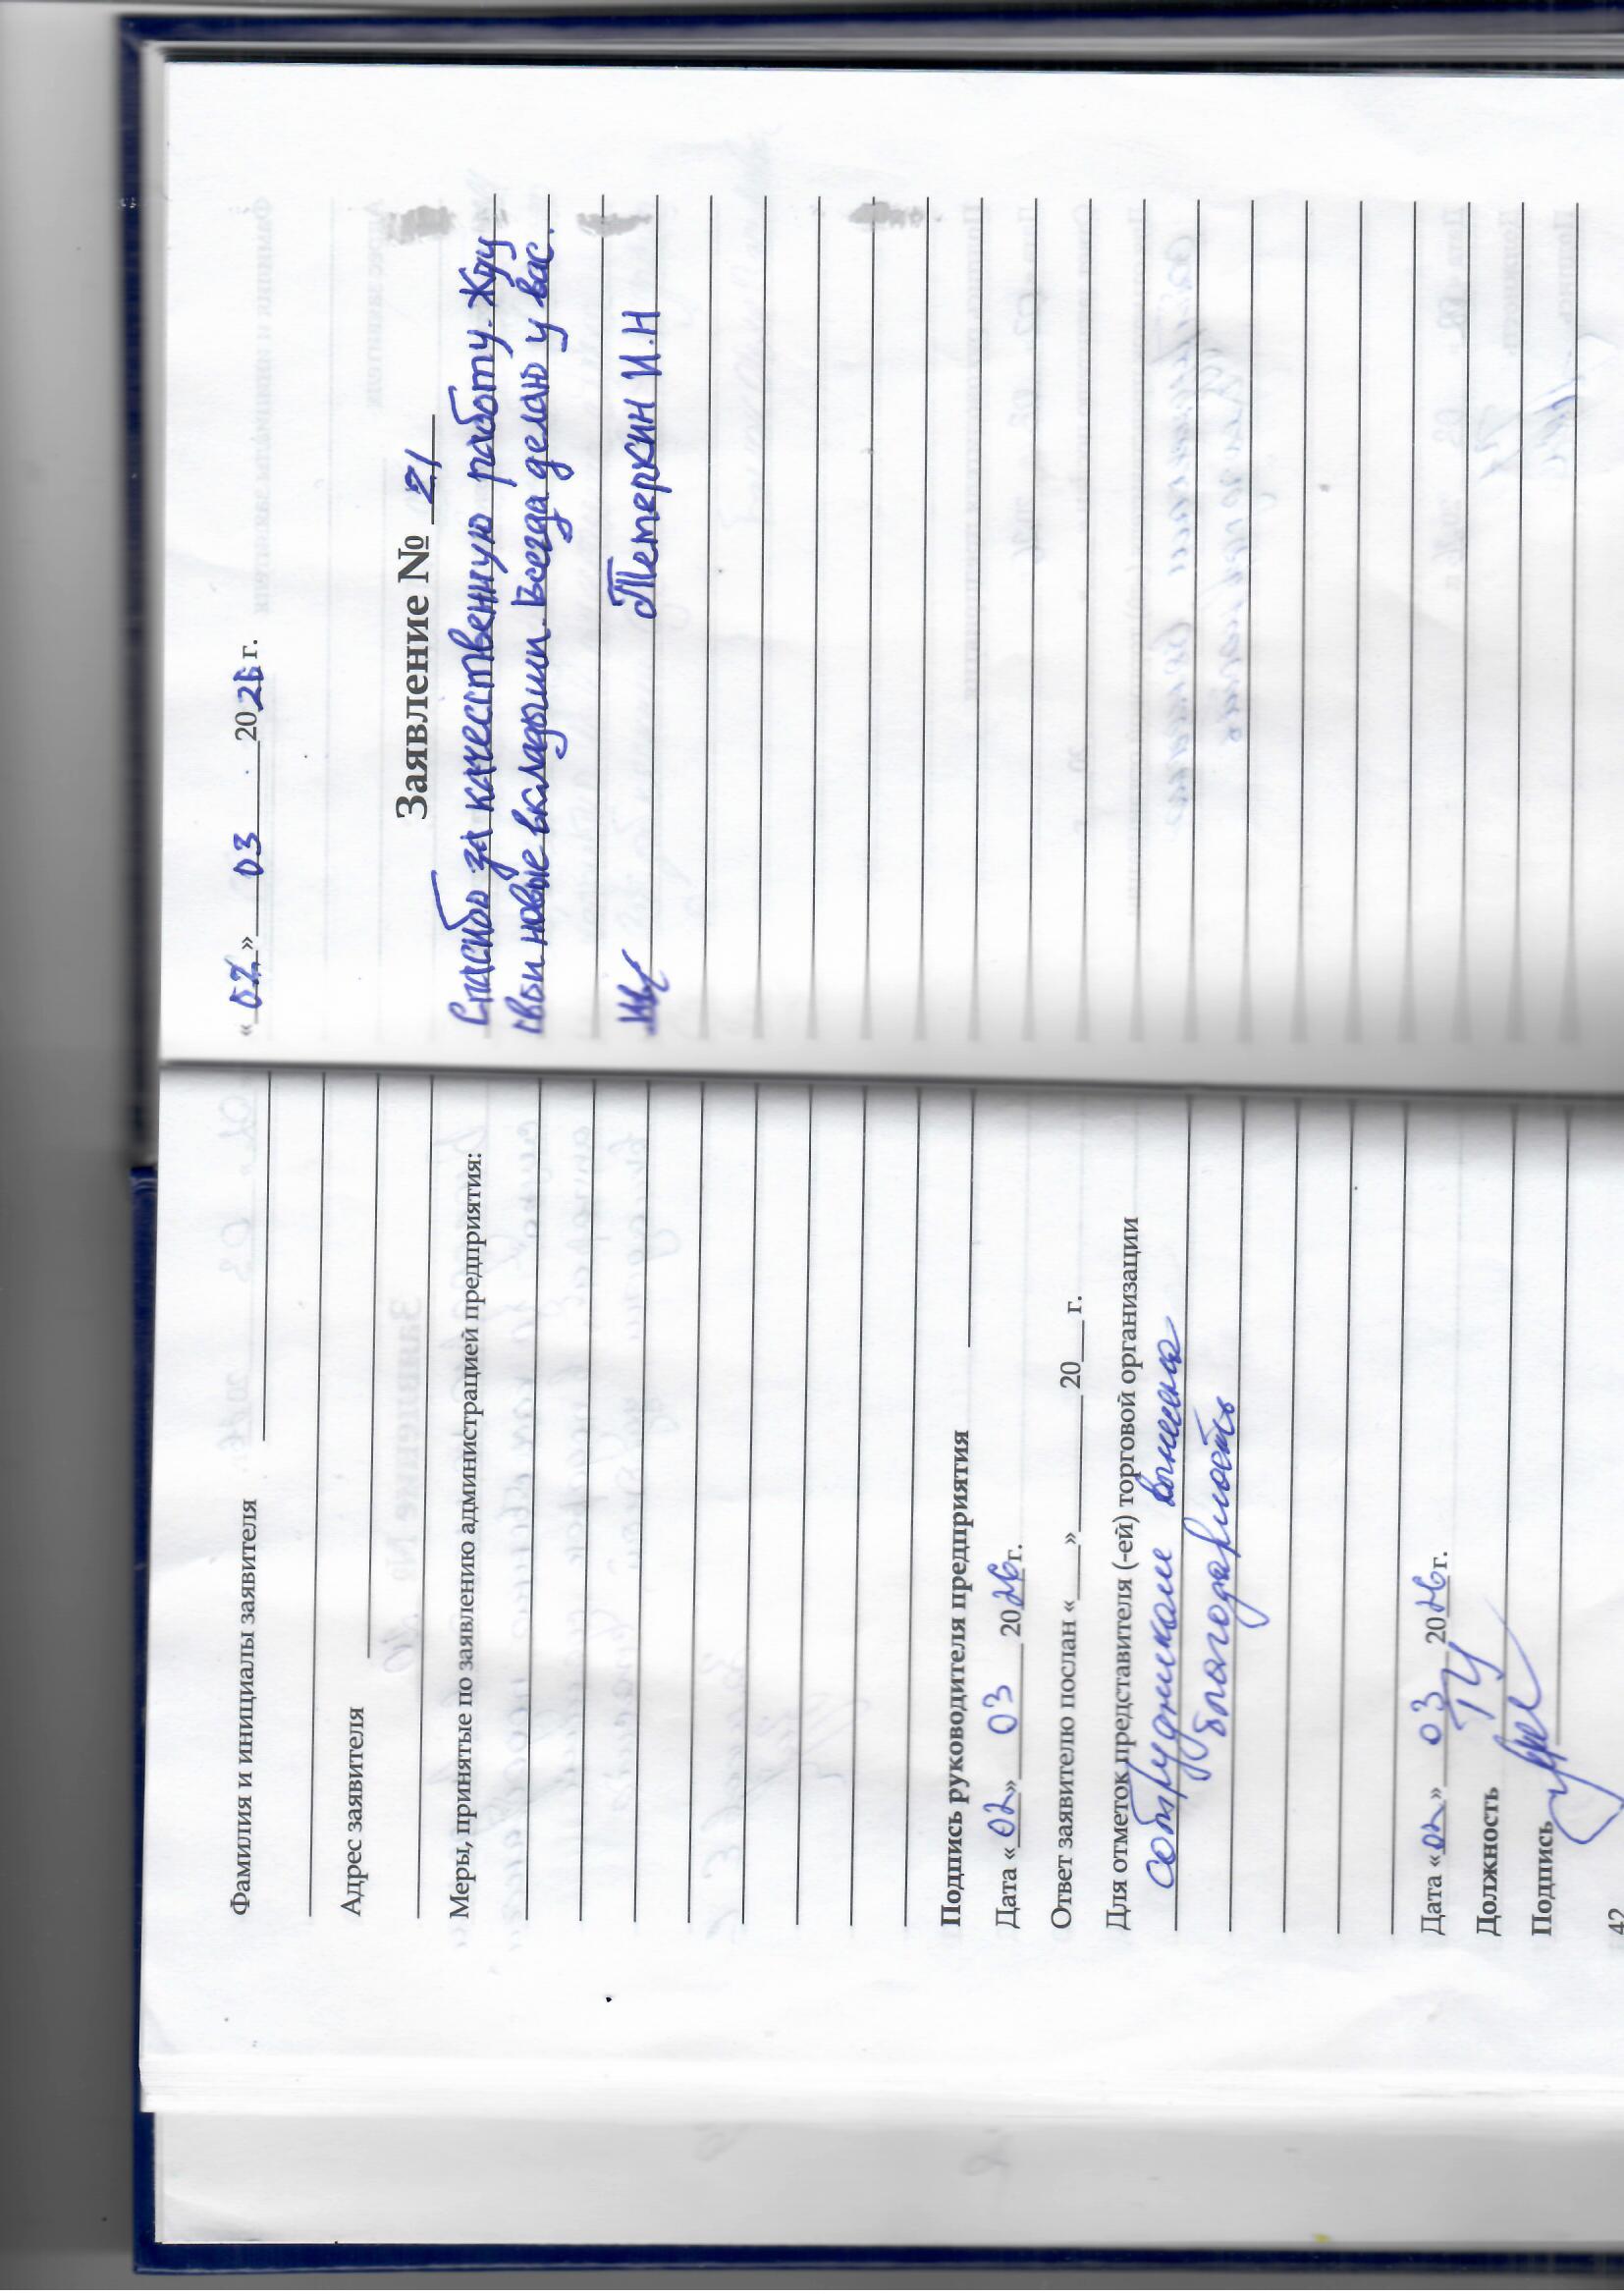 Фамилия и инициалы заявителя
Адрес заявителя
Меры, принятые по заявлению администрацией предприятия:
Подпись руководителя предприятия
Дата «02» 03 2026г.
Ответ заявителю послан «___» ___ 20___г.
Для отметок представителя (-ей) торговой организации
сотрудникам вынесена
благодарность
Дата «02» 03 2026г.
Должность ТУ
Подпись
42
«02» 03 2026 г.
Заявление № 21
Спасибо за качественную работу. Жду
свои новые вкладыши. Всегда делаю у вас.
Тетеркин И.Н